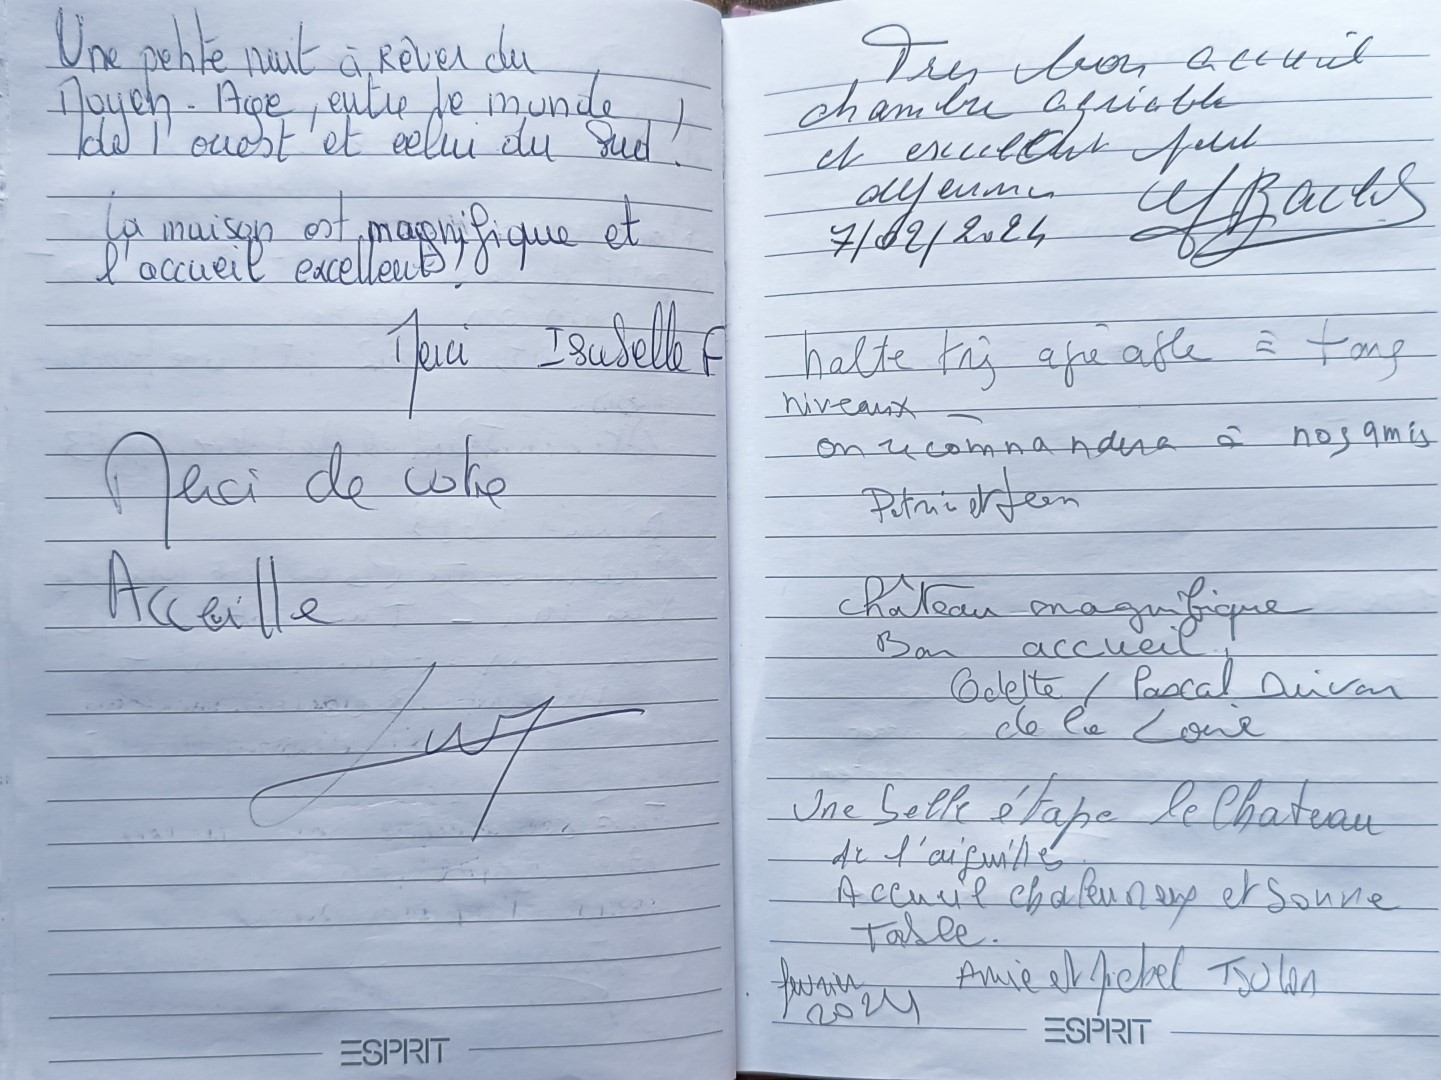 Une petite nuit à Rêver du
Moyen-Age, entre le monde
de l'ouest et celui du Sud !
La maison est magnifique et
l'accueil excellent.
Merci Isabelle F
Merci de votre
Acceuille
ESPRIT
Tres bon accueil
chambre agréable
et excellent petit
dejeuner
7/02/2024
halte très agréable à tous
niveaux
on recommandera à nos amis
Patric et Jean
château magnifique
Bon accueil,
Odelte / Pascal
de la Loire
Une belle étape le Chateau
de l'aiguille
Accueil chaleureux et bonne
Table.
Amie et Michel
fevrier
2024
ESPRIT